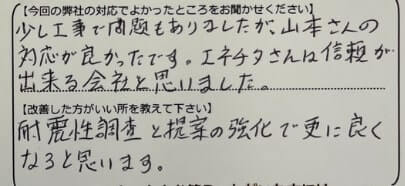 【今回の弊社の対応でよかったところをお聞かせください】
少し工事で問題もありましたが、山本さんの
対応が良かったです。エネチタさんは信頼が
出来る会社と思いました。
【改善した方がいい所を教えて下さい】
耐震性調査と提案の強化で更に良く
なると思います。